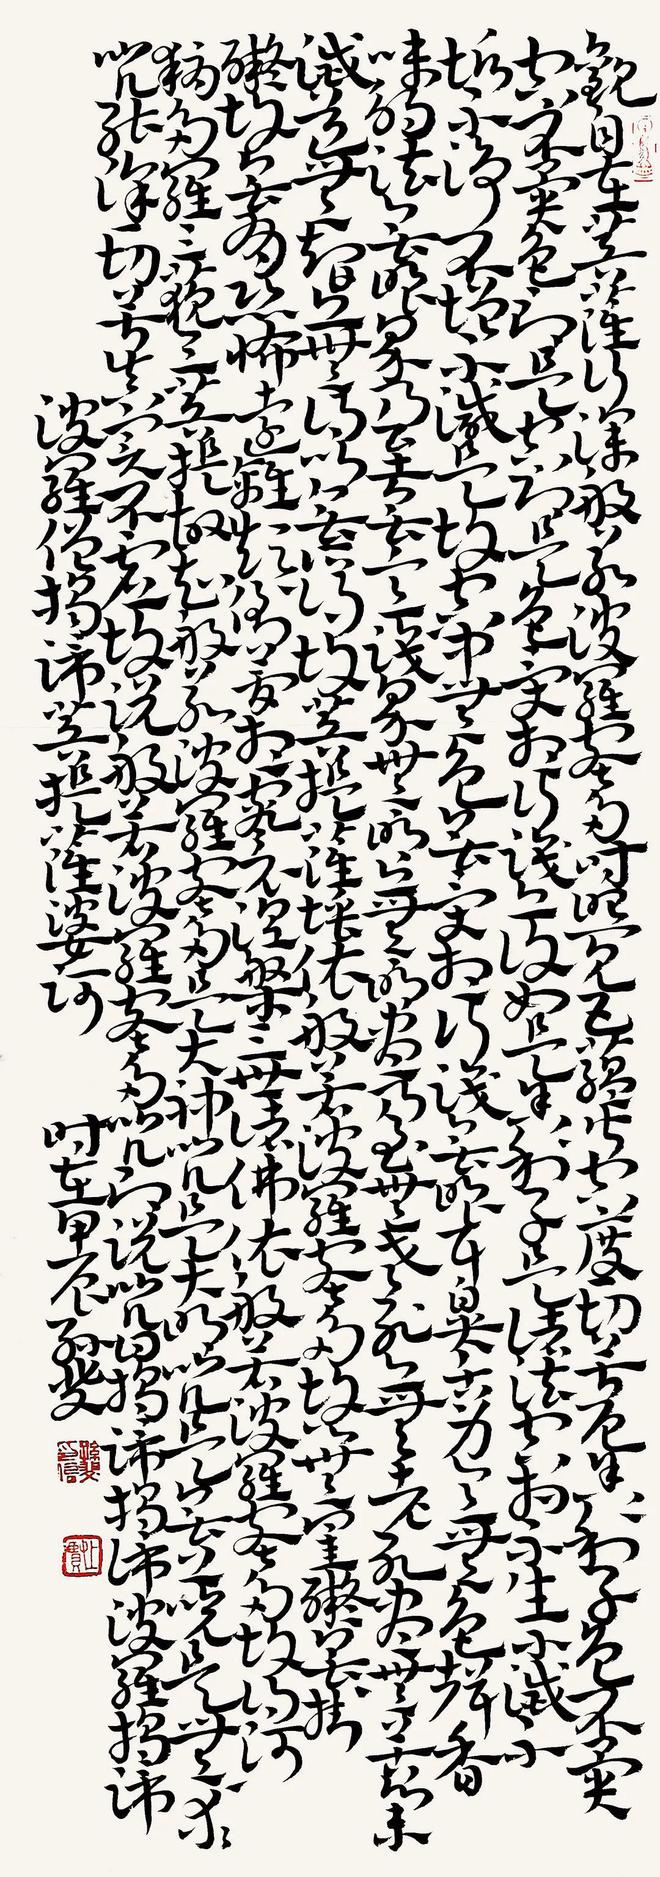 觀自在菩薩行深般若波羅蜜多時照見五蘊皆空度一切苦厄舍利子色不異
空空不異色色即是空空即是色受想行識亦復如是舍利子是諸法空相不生不滅不
垢不淨不增不減是故空中無色無受想行識無眼耳鼻舌身意無色聲香
味觸法無眼界乃至無意識界無無明亦無無明盡乃至無老死亦無老死盡無苦集
滅道無智亦無得以無所得故菩提薩埵依般若波羅蜜多故心無罣礙無罣
礙故無有恐怖遠離顛倒夢想究竟涅槃三世諸佛依般若波羅蜜多故得阿
耨多羅三藐三菩提故知般若波羅蜜多是大神咒是大明咒是無上咒是無等等
咒能除一切苦真實不虛故說般若波羅蜜多咒即說咒曰揭諦揭諦波羅揭諦
波羅僧揭諦菩提薩婆訶
时在甲辰孫斐